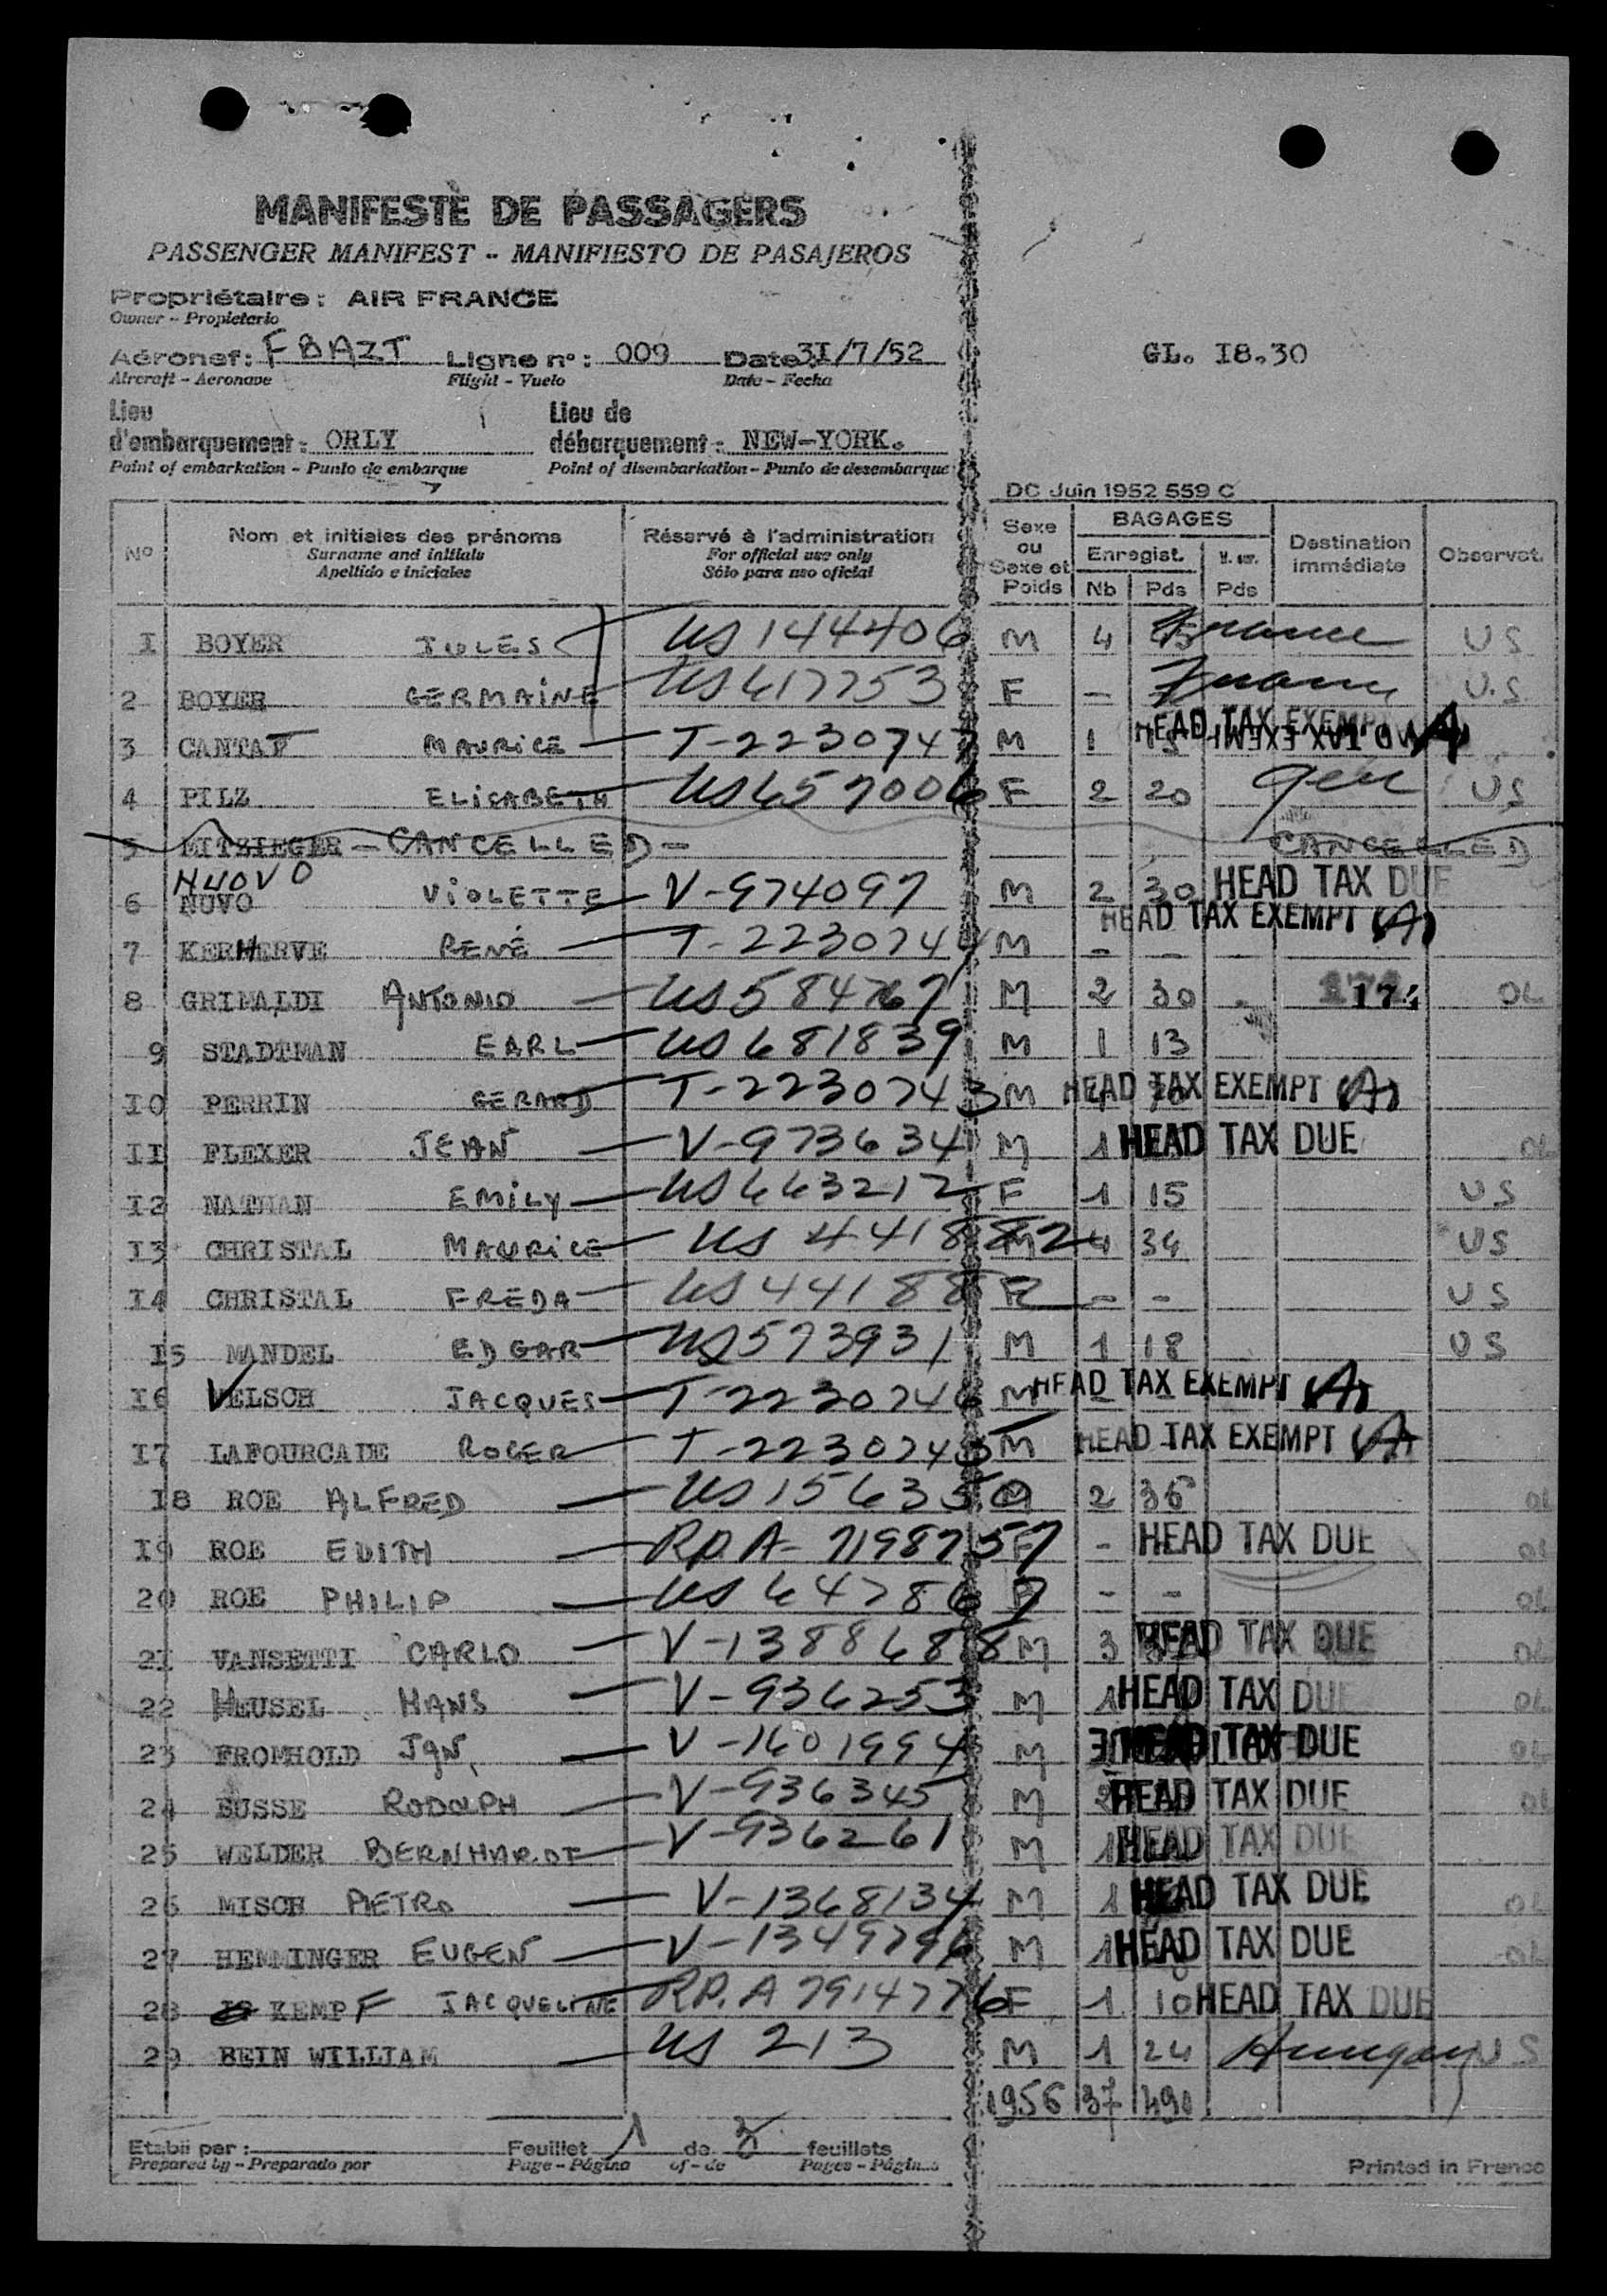 MANIFESTE DE PASSAGERS
PASSENGER MANIFEST - MANIFIESTO DE PASAJEROS
Propriétaire : AIR FRANCE
Owner - Propietario
Aéronef : F BAZT Ligne n° : 009 Date 3I/7/52 GL. I8.30
Aircraft - Aeronave Flight - Vuelo Date - Fecha
Lieu Lieu de
d'embarquement : ORLY débarquement : NEW-YORK.
Point of embarkation - Punto de embarque Point of disembarkation - Punto de desembarque
DC Juin 1952 559 C
N° Nom et initiales des prénoms Réservé à l'administration Sexe ou Sexe et Poids BAGAGES Destination immédiate Observat.
Surname and initials For official use only Enregist.
Apellido e iniciales Sólo para uso oficial Nb Pds Pds
I BOYER JULES US 144406 M 4 France US
2 BOYER GERMAINE US 617753 F - U.S
3 CANTAT MAURICE T-2230747 M 1 HEAD TAX EXEMPT
4 PILZ ELISABETH US 657006 F 2 20 US
5 MITZIEGER - CANCELLED - CANCELLED
NUOVO
6 NUVO VIOLETTE V-974097 M 2 30 HEAD TAX DUE
7 KERHERVE RENÉ T-2230744 M - - HEAD TAX EXEMPT (A)
8 GRIMALDI ANTONIO US 584767 M 2 30 OL
9 STADTMAN EARL US 681839 M 1 13
I0 PERRIN GERARD T-2230743 M HEAD TAX EXEMPT (A)
II FLEXER JEAN V-973634 M 1 HEAD TAX DUE OL
I2 NATHAN EMILY US 663212 F 1 15 US
I3 CHRISTAL MAURICE US 441882 M 4 34 US
I4 CHRISTAL FREDA US 44188 F - - US
I5 MANDEL EDGAR US 573931 M 1 18 US
I6 VELSCH JACQUES T-2230746 M HEAD TAX EXEMPT (A)
I7 LAFOURCADE ROGER T-2230745 M HEAD TAX EXEMPT (A)
I8 ROE ALFRED US 156350 M 2 36 OL
I9 ROE EDITH RP.A-7198757 F - HEAD TAX DUE OL
20 ROE PHILIP US 647867 - - OL
2I VANSETTI CARLO V-1388688 M 3 HEAD TAX DUE OL
22 HEUSEL HANS V-936253 M 1 HEAD TAX DUE OL
23 FROMHOLD JAN V-1601994 M HEAD TAX DUE OL
24 BUSSE RODOLPH V-936345 M 2 HEAD TAX DUE OL
25 WELDER BERNHARDT V-936261 M 1 HEAD TAX DUE
26 MISCH PIETRO V-1368134 M 1 HEAD TAX DUE OL
27 HEMMINGER EUGEN V-1349796 M 1 HEAD TAX DUE OL
28 KEMPF JACQUELINE RP.A 7914776 F 1 10 HEAD TAX DUE
29 BEIN WILLIAM US 213 M 1 24 Hungary US
1956 37 490
Etabli par : Feuillet 1 de 3 feuillets
Prepared by - Preparado por Page - Página of - de Pages - Páginas
Printed in France